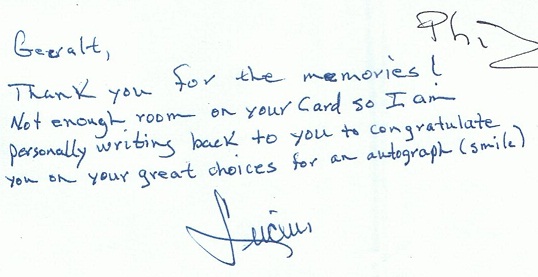 Phi
Geeralt,
Thank you for the memories!
Not enough room on your Card so I am
personally writing back to you to congratulate
you on your great choices for an autograph (smile)
Lucius